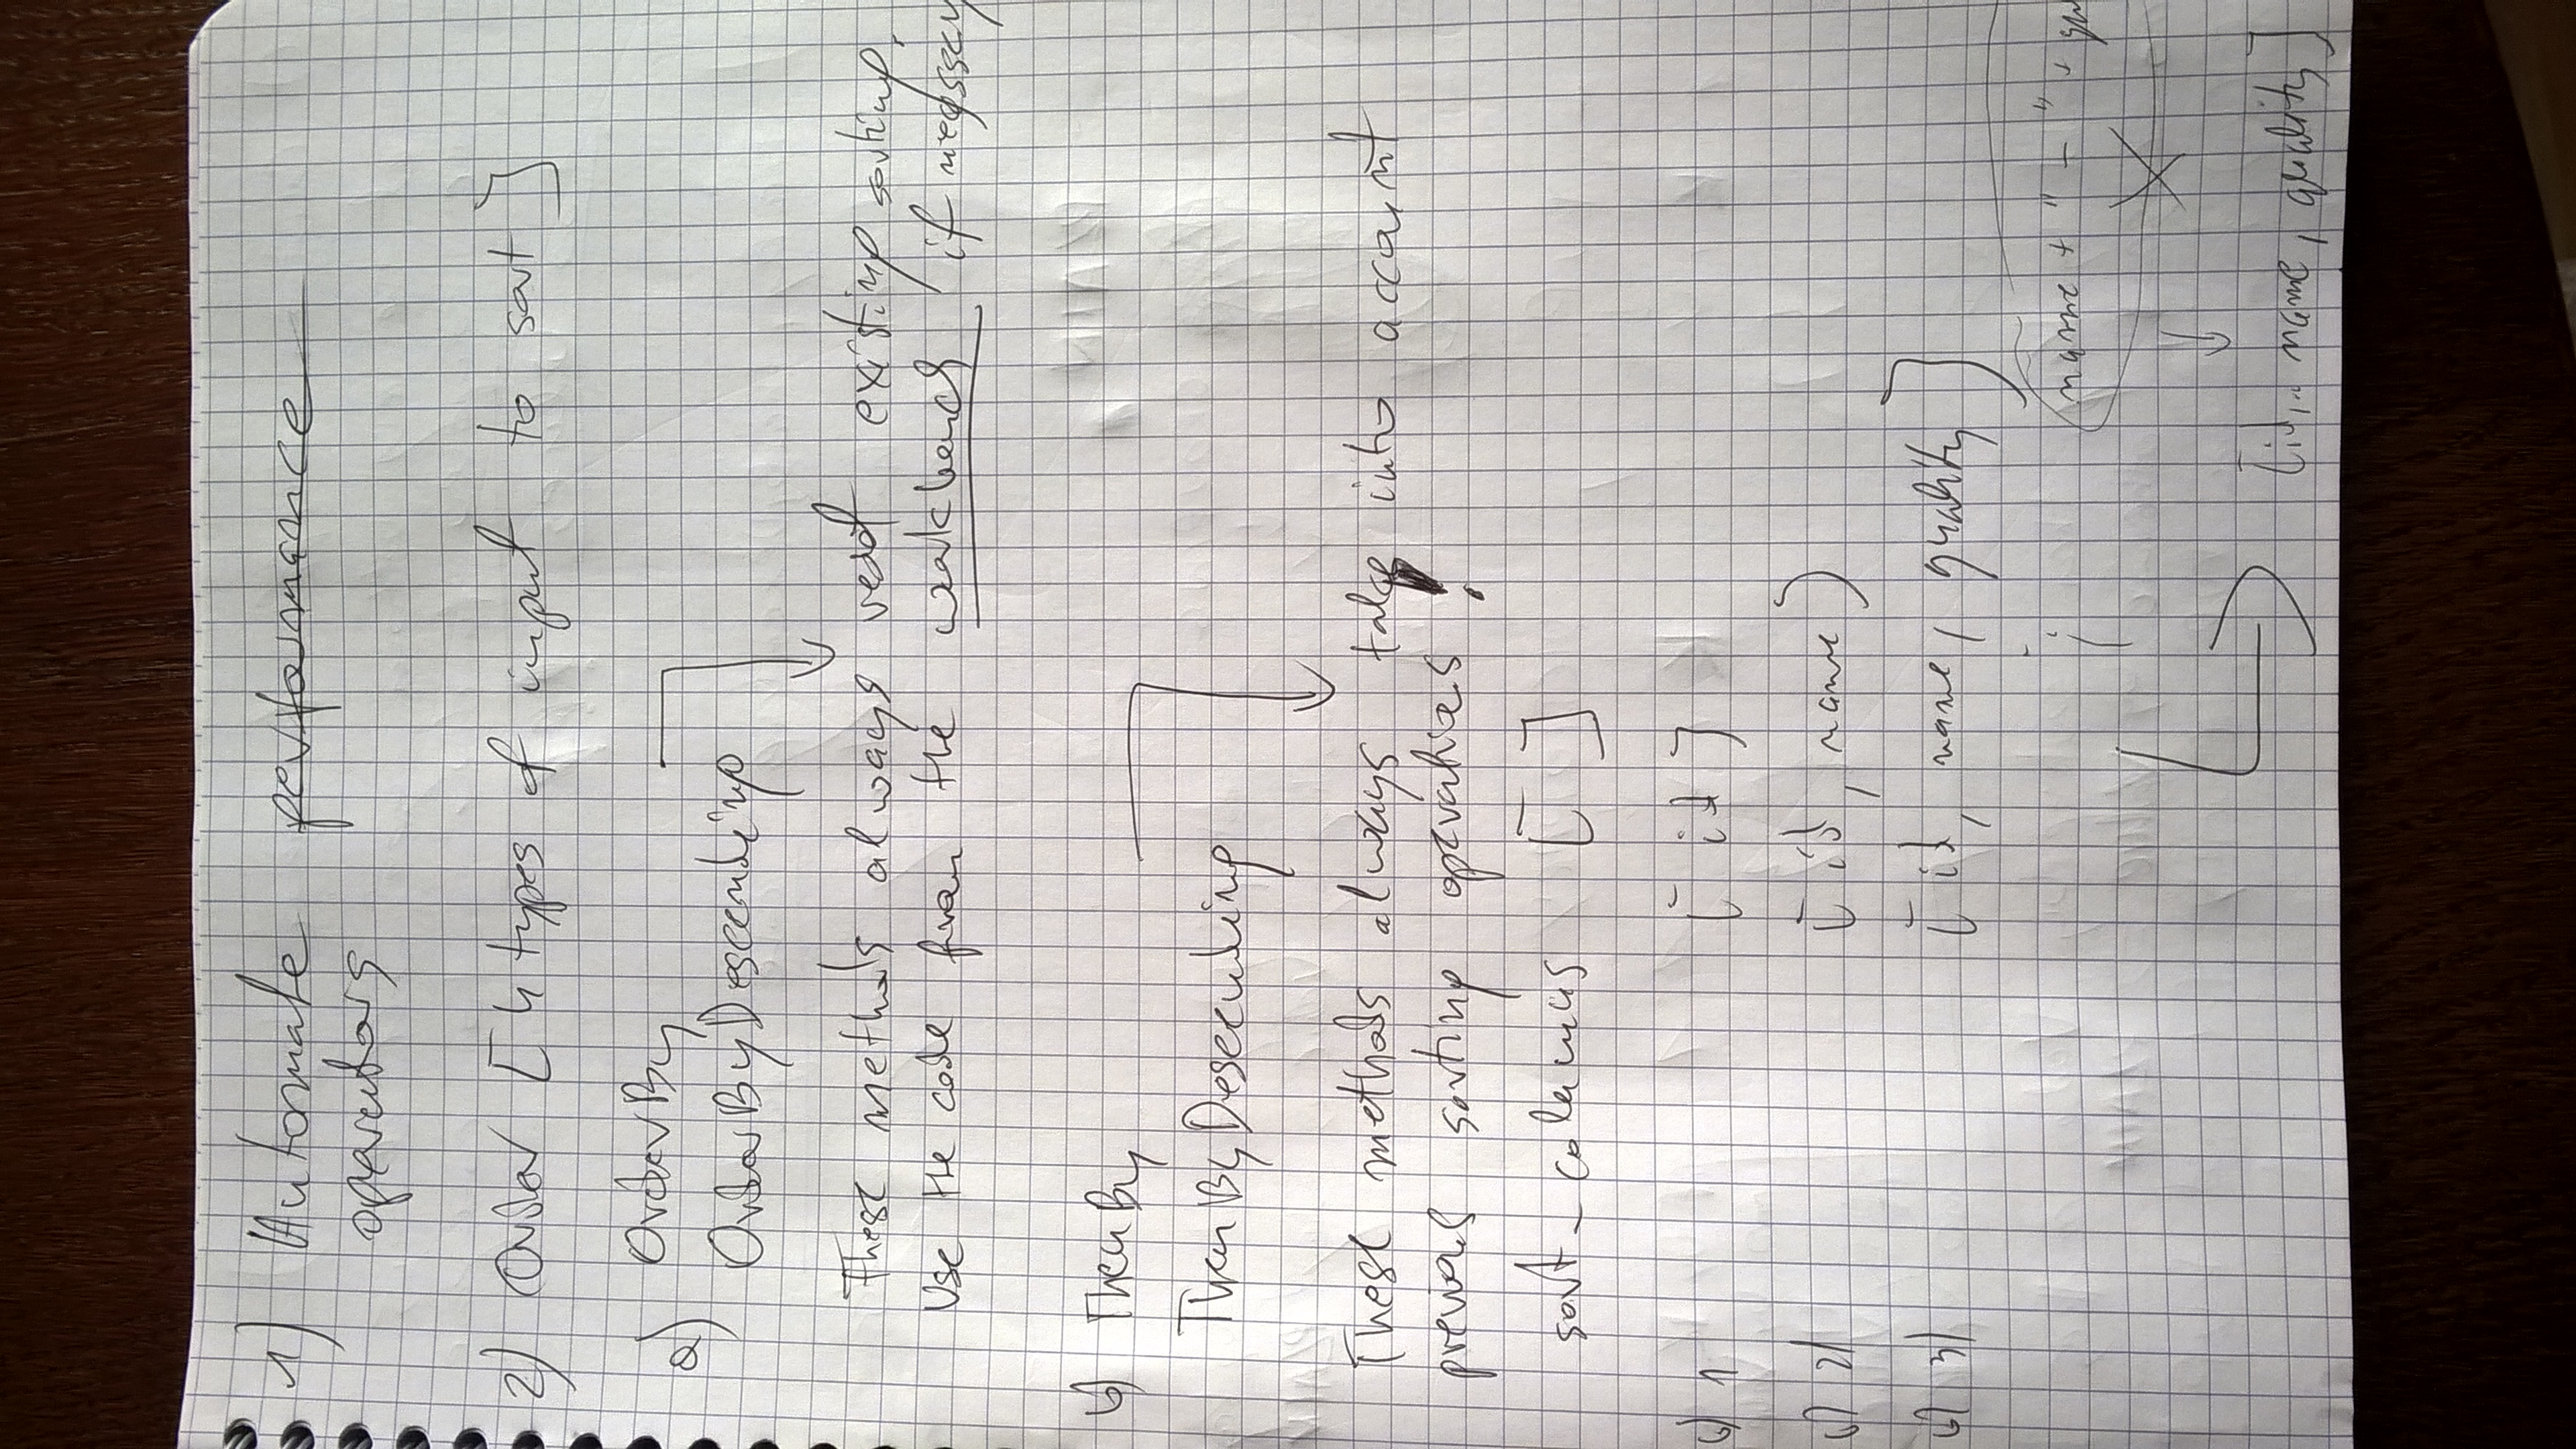 1) Automate performance
operators
2) Order [4 types of input to sort]
a) OrderBy
OrderByDescending
These methods always existing sorting.
Use the code from the workbench if necessary
b) ThenBy
ThenByDescending
These methods always take into account
previous sorting operations!
sort_columns [ ]
b) 1 [ id ]
b) 2) [ id, name )
b) 3) [ id, name, quality ]
name + " - " +
[id, .. name, quality]